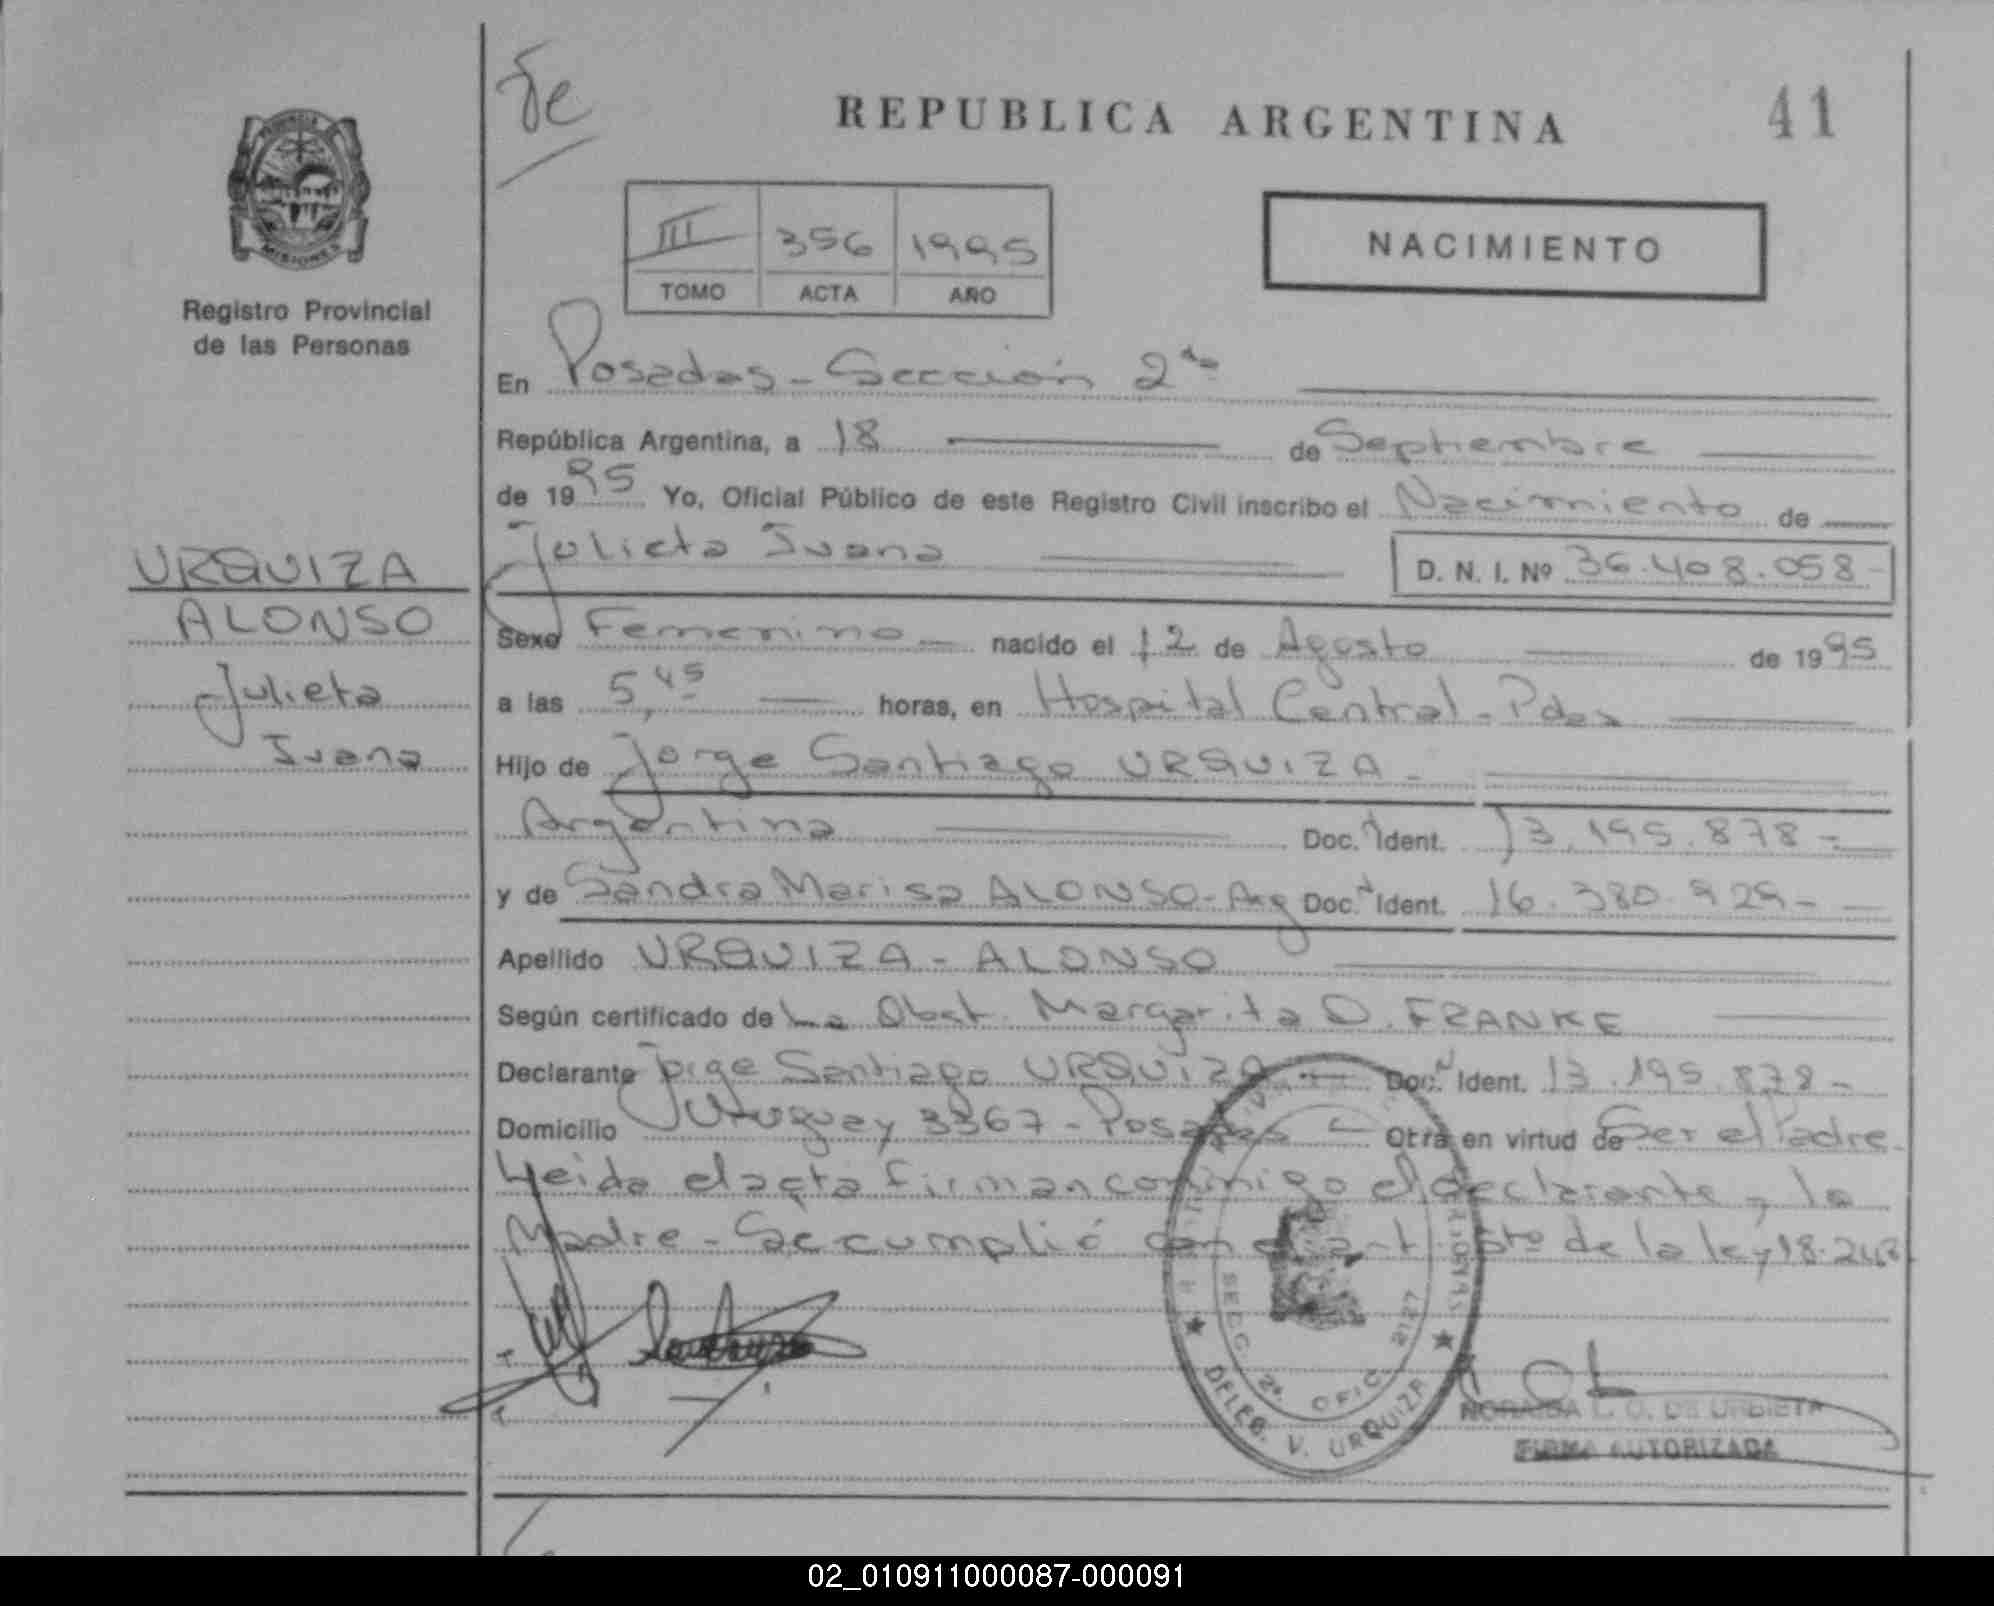 Je
REPUBLICA ARGENTINA
41
PROVINCIA
MISIONES
Registro Provincial
de las Personas
III 356 1995
TOMO ACTA AÑO
NACIMIENTO
En Posadas - Sección 2da
República Argentina, a 18 de Septiembre
de 1995 Yo, Oficial Público de este Registro Civil inscribo el Nacimiento de
Julieta Juana
D. N. I. Nº 36.408.058-
URQUIZA
ALONSO
Julieta
Juana
Sexo Femenino - nacido el 12 de Agosto de 1995
a las 5,45 horas, en Hospital Central - Pdas
Hijo de Jorge Santiago URQUIZA -
Argentina Doc. Ident. 13.195.878-
y de Sandra Marisa ALONSO - Arg Doc. Ident. 16.380.929-
Apellido URQUIZA - ALONSO
Según certificado de La Obst. Margarita O. FRANKE
Declarante Jorge Santiago URQUIZA - Doc. Ident. 13.195.878-
Domicilio Uruguay 3367 - Posadas - Otra en virtud de Ser el Padre.
Leida el acta firman conmigo el declarante, la
Madre - Se cumplió con el art 1 sto de la ley 18.248
SECC. 2ª OFIC. 2127
DELEG. V. URQUIZA
NORAIDA L. O. DE URBIETA
FIRMA AUTORIZADA
02_010911000087-000091